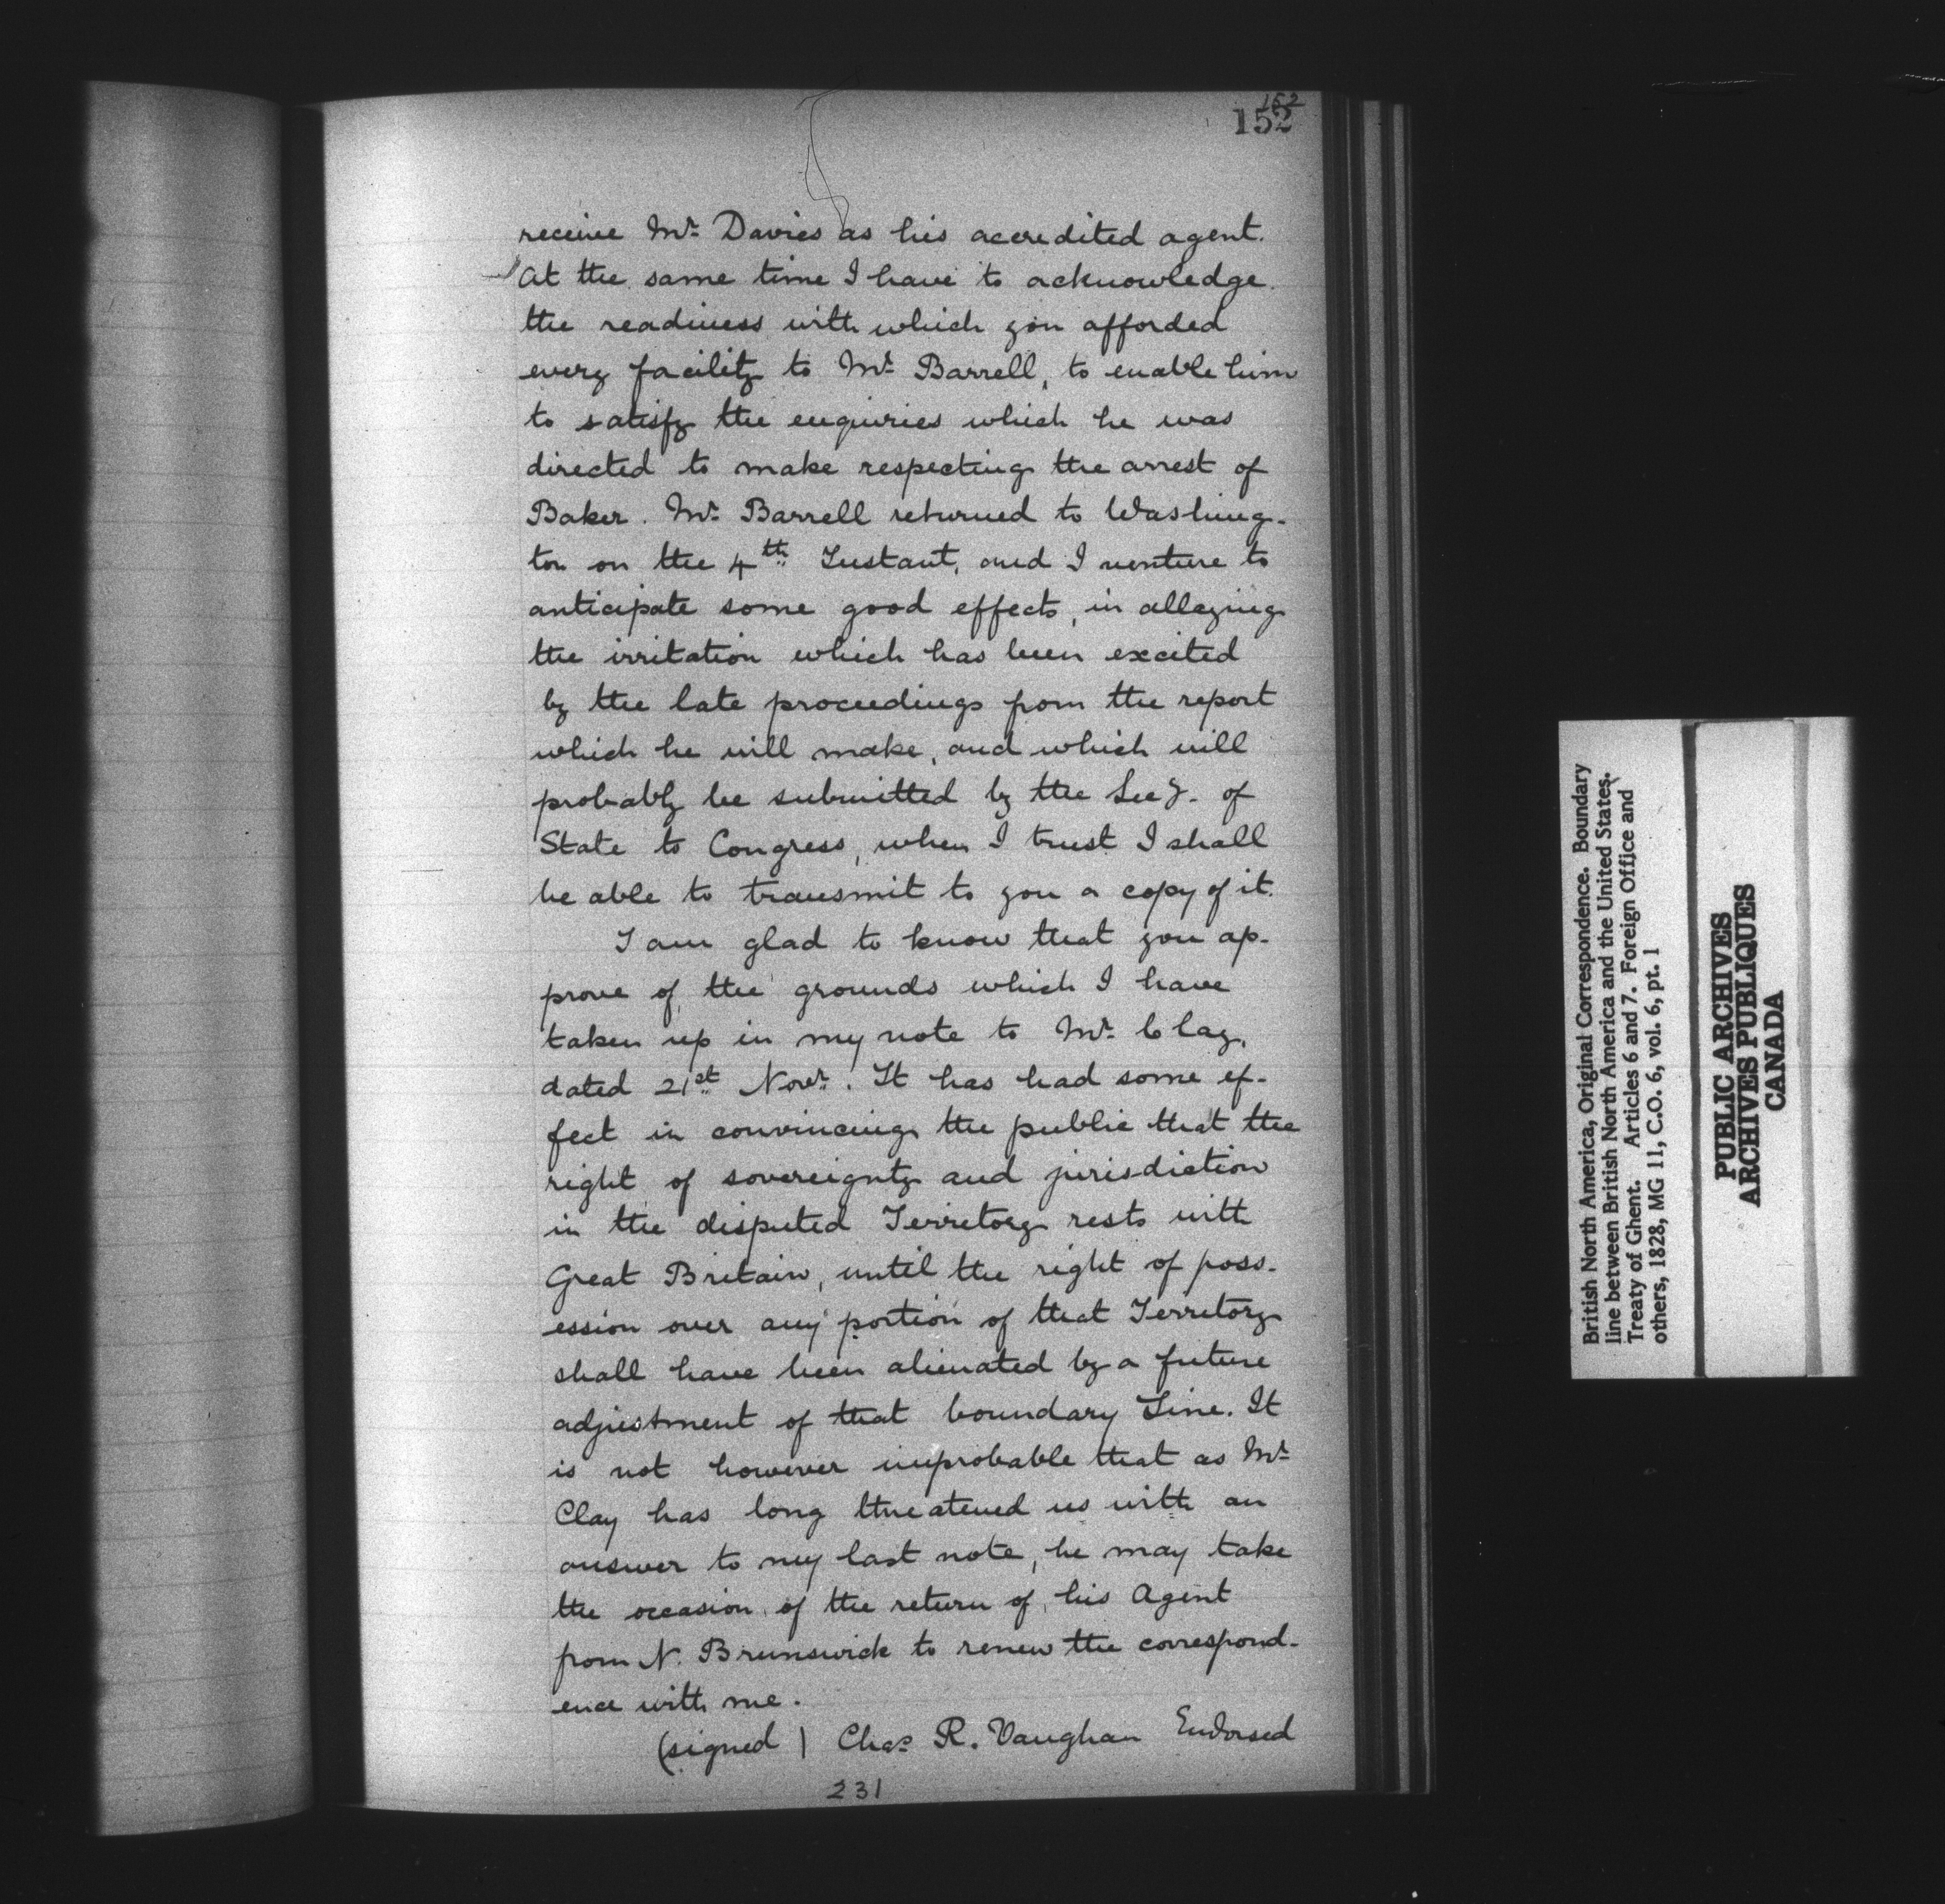 152
152
receive Mr. Davies as his accredited agent.
At the same time I have to acknowledge
the readiness with which you afforded
every facility to Mr. Barrell, to enable him
to satisfy the enquiries which he was
directed to make respecting the arrest of
Baker. Mr. Barrell returned to Washing-
ton on the 4th Instant, and I venture to
anticipate some good effects, in allaying
the irritation which has been excited
by the late proceedings from the report
which he will make, and which will
probably be submitted by the Secy. of
State to Congress, when I trust I shall
be able to transmit to you a copy of it.
I am glad to know that you ap-
prove of the grounds which I have
taken up in my note to Mr. Clay,
dated 21st Novr. It has had some ef-
fect in convincing the public that the
right of sovereignty and jurisdiction
in the disputed Territory rests with
Great Britain, until the right of poss-
ession over any portion of that Territory
shall have been alienated by a future
adjustment of that boundary Line. It
is not however improbable that as Mr.
Clay has long threatened us with an
answer to my last note, he may take
the occasion of the return of his Agent
from N. Brunswick to renew the correspond-
ence with me.
(signed) Chas. R. Vaughan Endorsed
231
British North America, Original Correspondence. Boundary
line between British North America and the United States.
Treaty of Ghent. Articles 6 and 7. Foreign Office and
others, 1828, MG 11, C.O. 6, vol. 6, pt. 1
PUBLIC ARCHIVES
ARCHIVES PUBLIQUES
CANADA